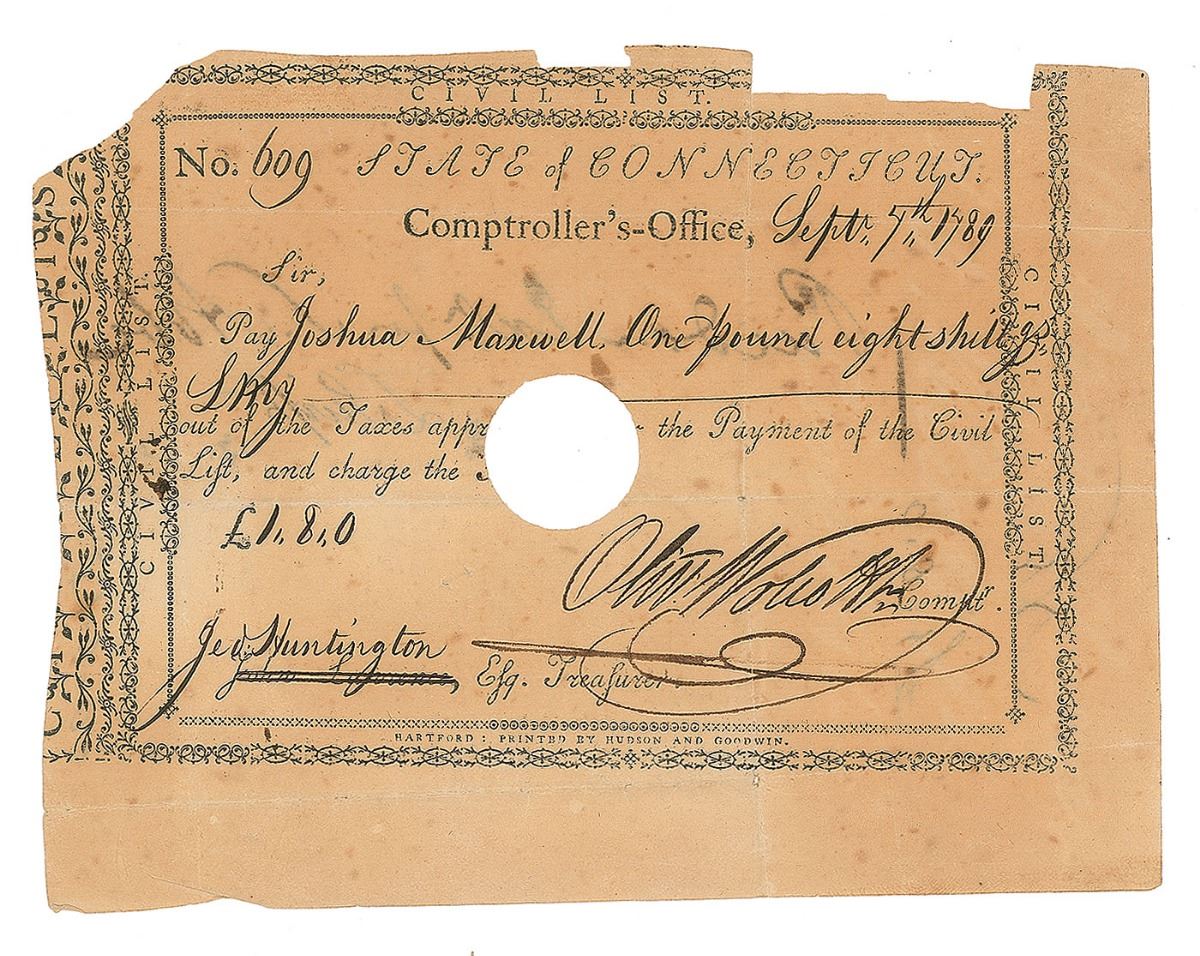 CIVIL LIST.
No. 609 STATE of CONNECTICUT.
Comptroller's-Office, Septr. 7th. 1789
Sir,
Pay Joshua Maxwell One pound eight shillgs
LMy
out of the Taxes appr the Payment of the Civil
List, and charge the
£1,,8,,0
Olivr. Wolcott Jr Comptr.
Jed Huntington
Esq. Treasurer.
HARTFORD: PRINTED BY HUDSON AND GOODWIN.
CIVIL LIST.
CIVIL LIST.